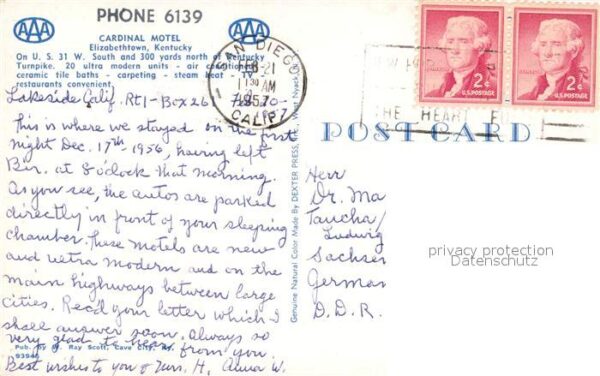 PHONE 6139
AAA
CARDINAL MOTEL
AAA
Elizabethtown, Kentucky
On U. S. 31 W. South and 300 yards north of Kentucky
Turnpike. 20 ultra modern units - air conditioned
ceramic tile baths - carpeting - steam heat - TV -
restaurants convenient.
SAN DIEGO
1 30 AM
1957
CALIF.
2¢
U.S. POSTAGE
2¢
U.S. POSTAGE
THE HEART F
POST CARD
Lakeside Calif. Rt 1 - Box 26
This is where we stayed on the first
night Dec. 17th 1956, having left
Bir. at 8 o'clock that morning.
As you see, the autos are parked
directly in front of your sleeping
chamber. These motels are new
and ultra modern and on the
main highways between large
cities. Rec'd your letter which I
shall answer soon. Always so
very glad to hear from you
Best wishes to you & Mrs. H. Alma W.
Pub. by W. Ray Scott, Cave City, Ky.
93940
Genuine Natural Color Made By DEXTER PRESS, Inc., West Nyack,
Herr
Dr. Ma
Taucha/
Ludwig
Sachsen
German
D.D.R.
privacy protection
Datenschutz